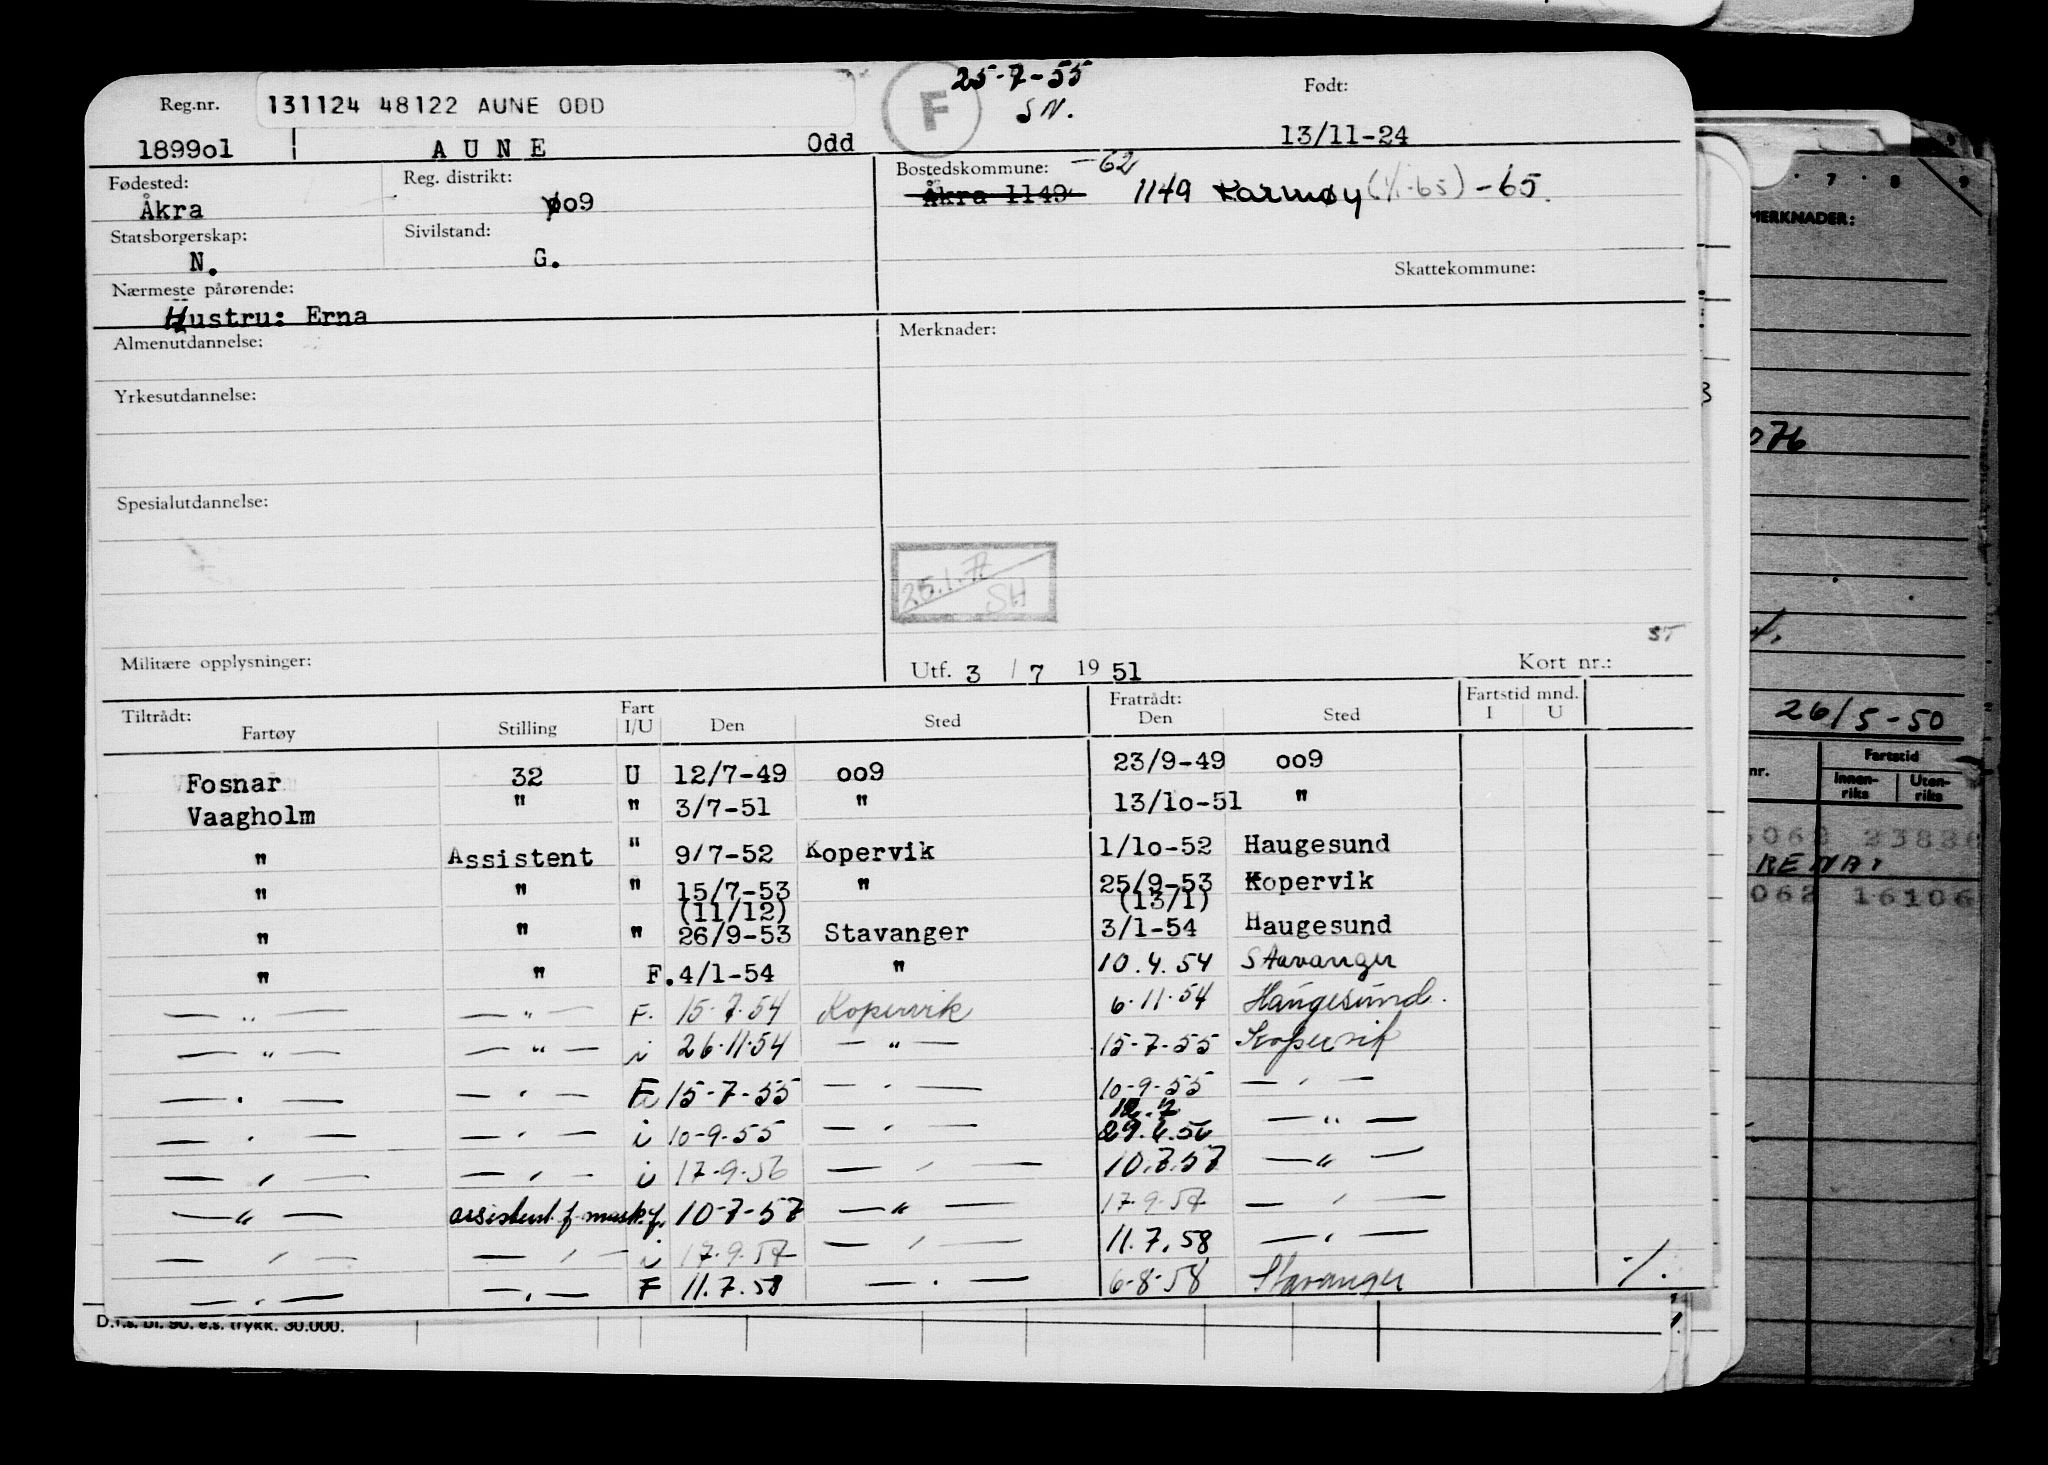 25-7-55
F
SN.
Født:
Reg.nr. 131124 48122 AUNE ODD
1899o1 AUNE Odd 13/11-24
Fødested: Reg. distrikt: Bostedskommune: -62
Åkra øo9 Åkra 1149 1149 Karmøy (1/1-65) -65.
Statsborgerskap: Sivilstand:
N. G.
Skattekommune:
Nærmeste pårørende:
Hustru: Erna
Almenutdannelse: Merknader:
Yrkesutdannelse:
Spesialutdannelse:
25.1.77
SH
ST
Militære opplysninger: Utf. 3 / 7 19 51 Kort nr.:
Tiltrådt: Fart Fratrådt: Fartstid mnd.
Fartøy Stilling I/U Den Sted Den Sted I U
Fosnar 32 U 12/7-49 oo9 23/9-49 oo9
Vaagholm " " 3/7-51 " 13/1o-51 "
" Assistent " 9/7-52 Kopervik 1/1o-52 Haugesund
" " " 15/7-53 " 25/9-53 Kopervik
(11/12) (13/1)
" " " 26/9-53 Stavanger 3/1-54 Haugesund
" " F. 4/1-54 " 10.4.54 Stavanger
— " — — " — F. 15-7.54 Kopervik 6-11-54 Haugesund.
— " — — " — i 26.11.54 — " — 15-7-55 Kopervik
— " — — " — F 15-7-55 — " — 10-9-55 — " —
12.7
— " — — " — i 10-9-55 — " — 29.6.56 — " —
— " — — " — i 17-9-56 — " — 10.7.57 — " —
— " — assistent f mask. f. 10-7-57 — " — 17-9-57 — " —
— " — — " — i 17-9.57 — " — 11.7.58 — " —
— " — — " — F 11.7.58 — " — 6-8-58 Stavanger -/.
D.f.s. bl. 90. e.s. trykk. 30.000.
7 8 9
MERKNADER:
076
26/5-50
nr. Fartstid
Innen-riks Uten-riks
062 16106